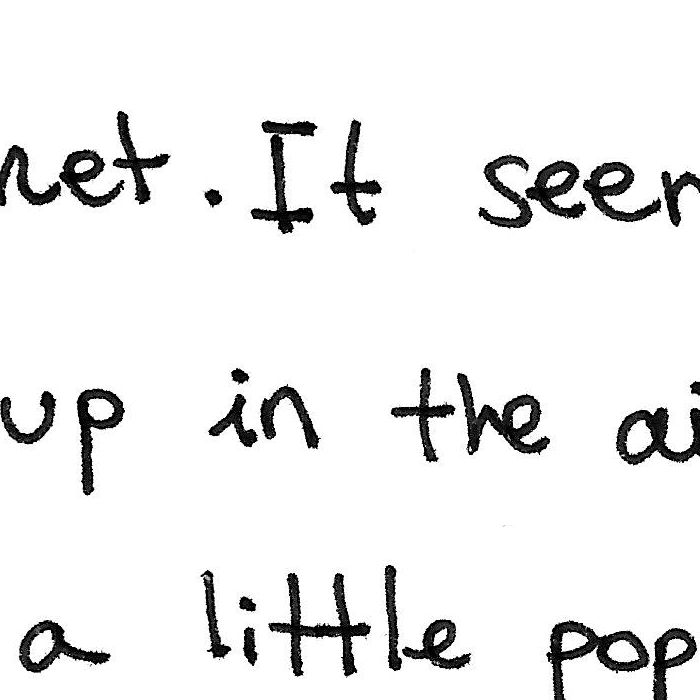 net. It seem
up in the ai
a little pop